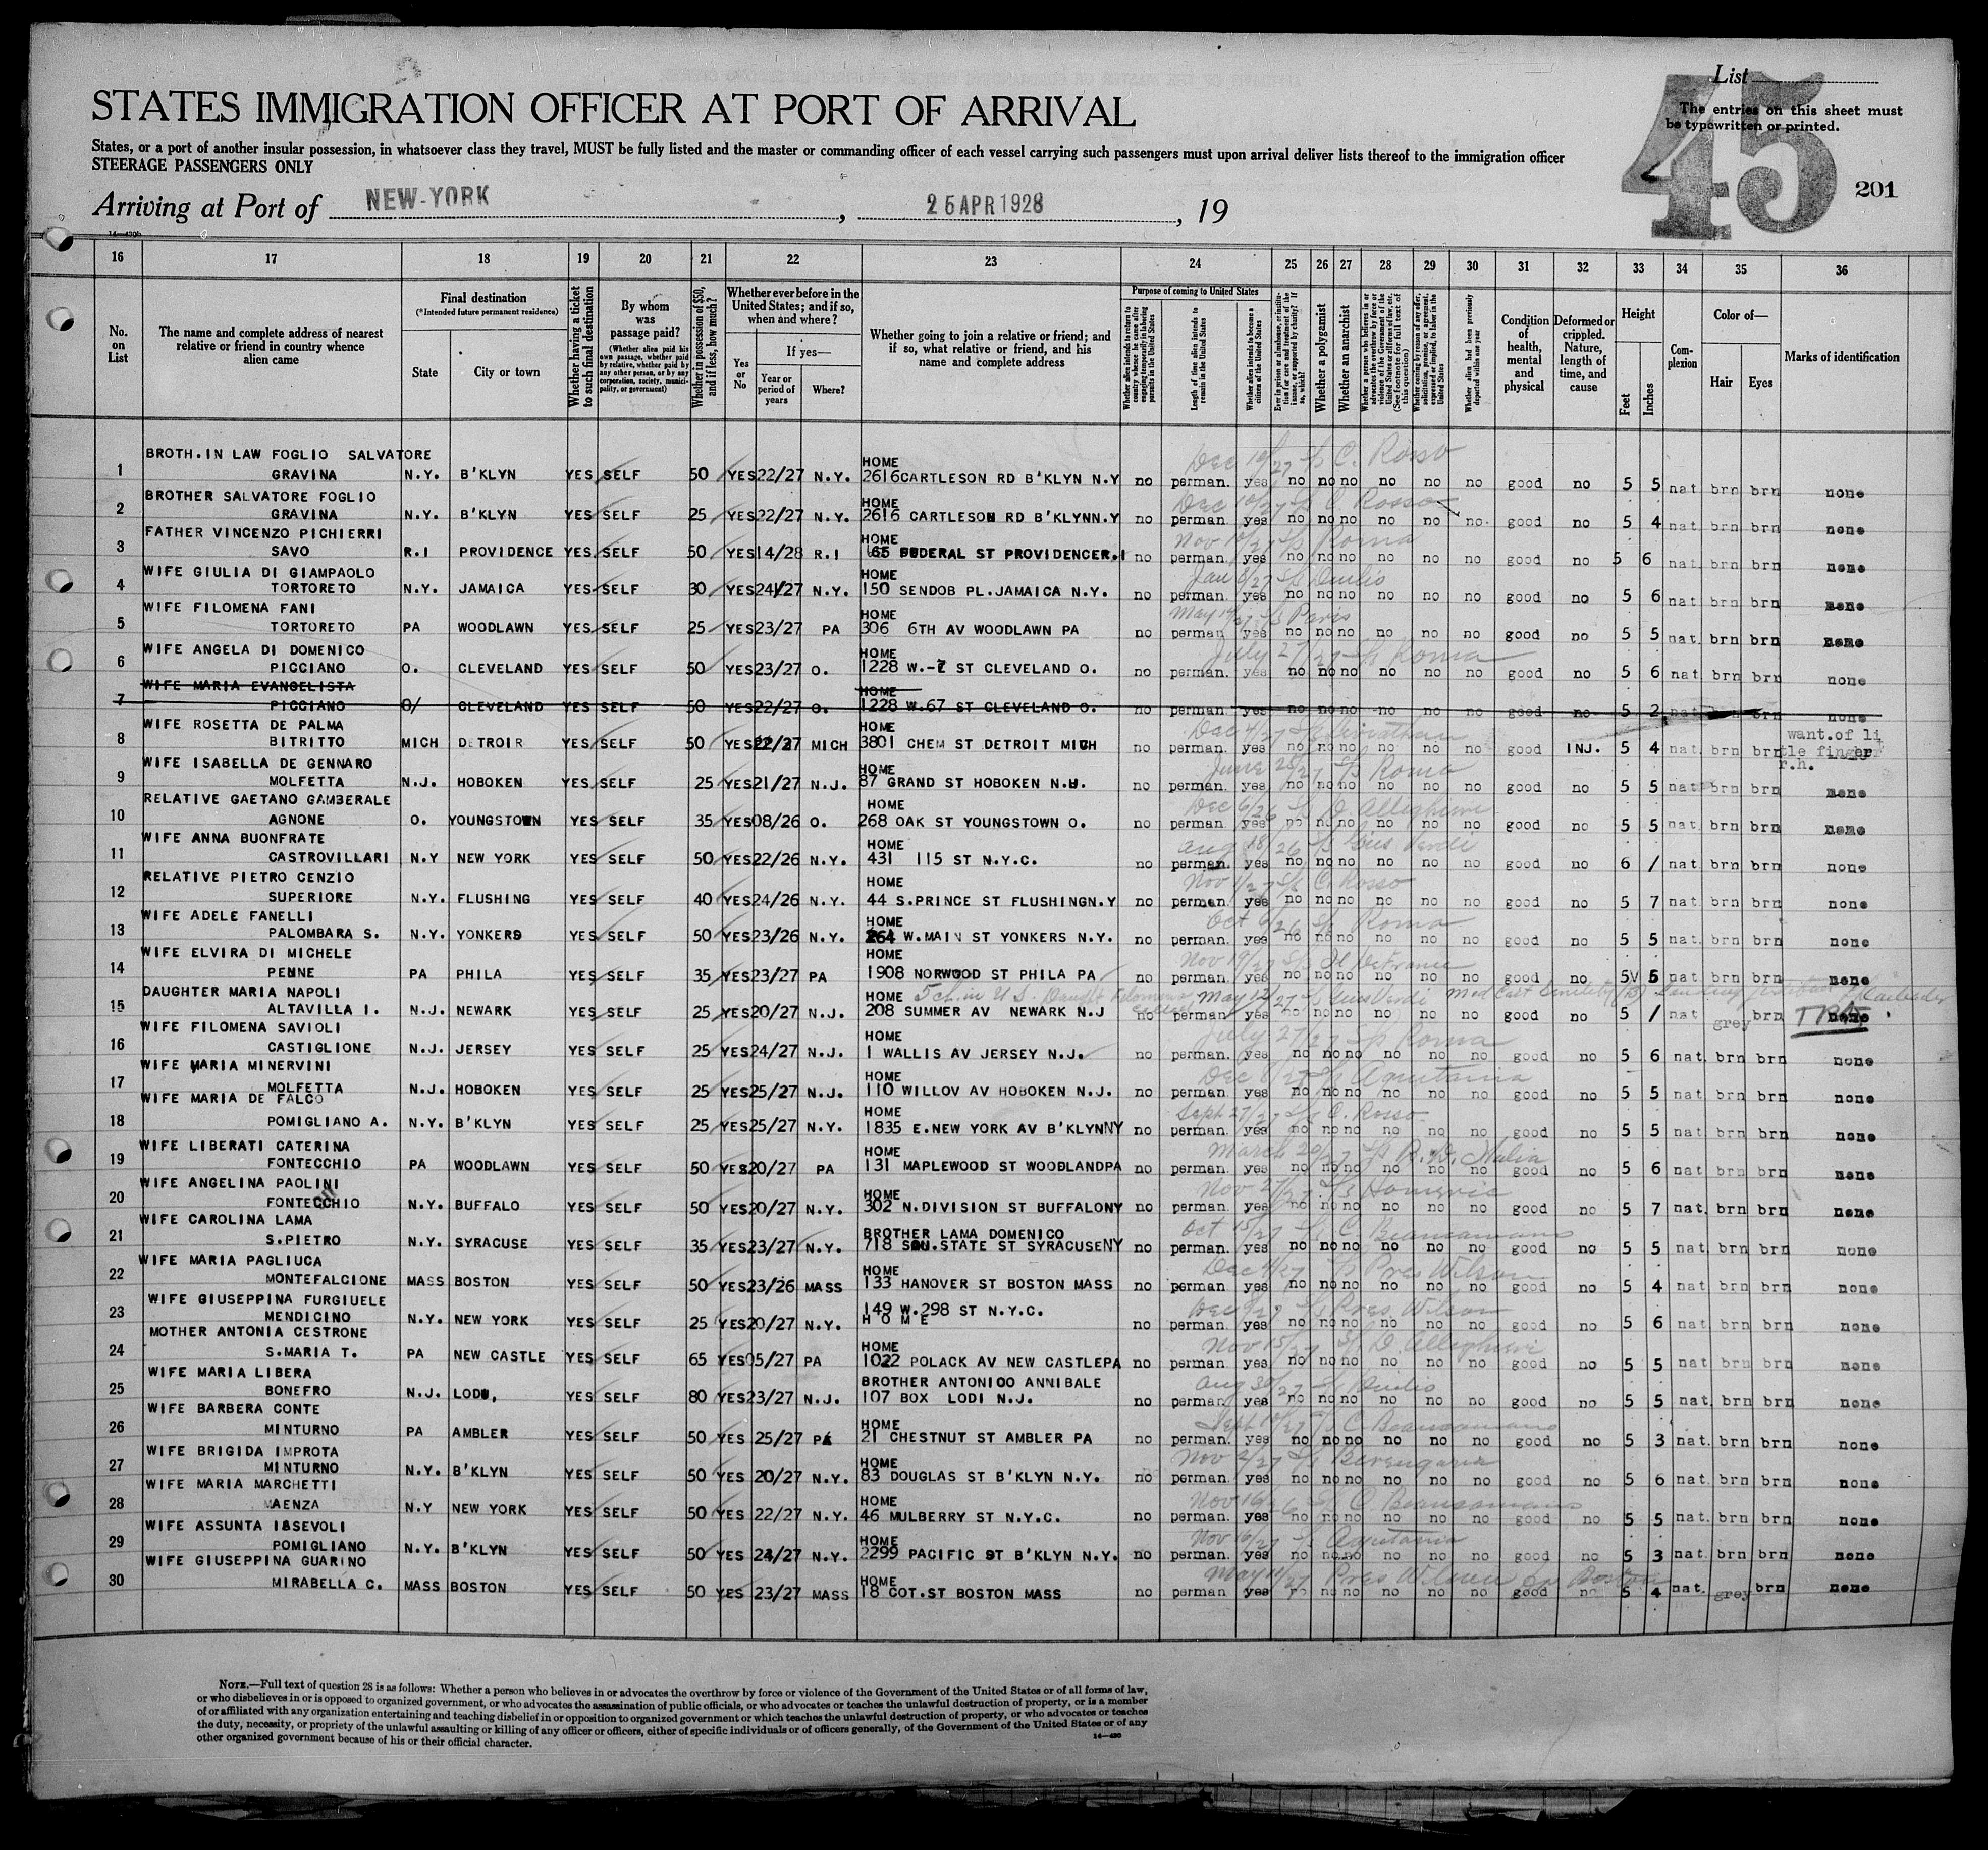 List
45
The entries on this sheet must
be typewritten or printed.
STATES IMMIGRATION OFFICER AT PORT OF ARRIVAL
States, or a port of another insular possession, in whatsoever class they travel, MUST be fully listed and the master or commanding officer of each vessel carrying such passengers must upon arrival deliver lists thereof to the immigration officer
STEERAGE PASSENGERS ONLY
Arriving at Port of NEW-YORK , 25 APR 1928 , 19
201
14—430b
16 17 18 19 20 21 22 23 24 25 26 27 28 29 30 31 32 33 34 35 36
No. on List
The name and complete address of nearest relative or friend in country whence alien came
Final destination
(*Intended future permanent residence)
State
City or town
Whether having a ticket to such final destination
By whom was passage paid?
(Whether alien paid his own passage, whether paid by relative, whether paid by any other person, or by any corporation, society, municipality, or government)
Whether in possession of $50, and if less, how much?
Whether ever before in the United States; and if so, when and where?
Yes or No
If yes—
Year or period of years
Where?
Whether going to join a relative or friend; and if so, what relative or friend, and his name and complete address
Purpose of coming to United States
Whether alien intends to return to country whence he came after engaging temporarily in laboring pursuits in the United States
Length of time alien intends to remain in the United States
Whether alien intends to become a citizen of the United States
Ever in prison or almshouse, or institution for care and treatment of the insane, or supported by charity? If so, which?
Whether a polygamist
Whether an anarchist
Whether a person who believes in or advocates the overthrow by force or violence of the Government of the United States or all forms of law, etc. (See footnote for full text of this question)
Whether coming by reason of any offer, solicitation, promise, or agreement, expressed or implied, to labor in the United States
Whether alien had been previously deported within one year
Condition of health, mental and physical
Deformed or crippled. Nature, length of time, and cause
Height
Feet
Inches
Complexion
Color of—
Hair
Eyes
Marks of identification
BROTH.IN LAW FOGLIO SALVATORE HOME Dec 10/27 S/S C. Rosso
1 GRAVINA N.Y. B'KLYN YES SELF 50 YES 22/27 N.Y. 2616 CARTLESON RD B'KLYN N.Y no perman. yes no no no no no no good no 5 5 nat brn brn none
BROTHER SALVATORE FOGLIO HOME Dec 10/27 S/S C Rosso
2 GRAVINA N.Y. B'KLYN YES SELF 25 YES 22/27 N.Y. 2616 CARTLESON RD B'KLYNN.Y no perman. yes no no no no no no. good no 5 4 nat. brn brn none
FATHER VINCENZO PICHIERRI HOME Nov 10/27 S/S Roma
3 SAVO R.I PROVIDENCE YES SELF 50 YES 14/28 R.I 65 FEDERAL ST PROVIDENCER.I no perman. yes no no no no no no good no 5 6 nat. brn brn none
WIFE GIULIA DI GIAMPAOLO HOME Jan 6/27 S/S Duilio
4 TORTORETO N.Y. JAMAICA YES SELF 30 YES 24/27 N.Y. 150 SENDOB PL.JAMAICA N.Y. no perman. yes no no no no no no good no 5 6 nat brn brn none
WIFE FILOMENA FANI HOME May 14/27 S/S Paris
5 TORTORETO PA WOODLAWN YES SELF 25 YES 23/27 PA 306 6TH AV WOODLAWN PA no perman yes no no no no no no good no 5 5 nat. brn brn none
WIFE ANGELA DI DOMENICO HOME July 27/27 S/S Roma
6 PICCIANO O. CLEVELAND YES SELF 50 YES 23/27 O. 1228 W.-7 ST CLEVELAND O. no perman. yes no no no no no no good no 5 6 nat brn brn none
WIFE MARIA EVANGELISTA HOME
7 PICCIANO O/ CLEVELAND YES SELF 50 YES 22/27 O. 1228 W.67 ST CLEVELAND O. no perman. yes no no no no no no good no 5 2 nat brn none
WIFE ROSETTA DE PALMA HOME Dec 4/27 S/S Leviathan want.of li
8 BITRITTO MICH DETROIR YES SELF 50 YES 22/27 MICH 3801 CHEM ST DETROIT MICH no perman. yes no no no no no no good INJ. 5 4 nat. brn brn tle finger
r.h.
WIFE ISABELLA DE GENNARO HOME June 28/27 S/S Roma
9 MOLFETTA N.J. HOBOKEN YES SELF 25 YES 21/27 N.J. 87 GRAND ST HOBOKEN N.J. no perman. yes no no no no no no good no 5 5 nat brn brn none
RELATIVE GAETANO GAMBERALE HOME Dec 6/26 S/S D. Allegheri
10 AGNONE O. YOUNGSTOWN YES SELF 35 YES 08/26 O. 268 OAK ST YOUNGSTOWN O. no perman. yes no no no no no no good no 5 5 nat. brn brn none
WIFE ANNA BUONFRATE HOME Aug 18/26 S/S Gius Verdi
11 CASTROVILLARI N.Y NEW YORK YES SELF 50 YES 22/26 N.Y. 431 115 ST N.Y.C. no perman. yes no no no no no no good no 6 / nat brn brn none
RELATIVE PIETRO CENZIO HOME Nov 1/27 S/S C. Rosso
12 SUPERIORE N.Y. FLUSHING YES SELF 40 YES 24/26 N.Y. 44 S.PRINCE ST FLUSHINGN.Y no perman. yes no no no no no no good no 5 7 nat. brn brn none
WIFE ADELE FANELLI HOME Oct 6/26 S/S Roma
13 PALOMBARA S. N.Y. YONKERS YES SELF 50 YES 23/26 N.Y. 264 W.MAIN ST YONKERS N.Y. no perman. yes no no no no no no good no 5 5 nat. brn brn none
WIFE ELVIRA DI MICHELE HOME Nov 19/27 S/S
14 PENNE PA PHILA YES SELF 35 YES 23/27 PA 1908 NORWOOD ST PHILA PA no perman. yes no no no no no no good no 5 6 nat brn brn none
DAUGHTER MARIA NAPOLI HOME 5 ch. in U.S. Daught Filomena May 12/27 S/S Gius Verdi
15 ALTAVILLA I. N.J. NEWARK YES SELF 25 YES 20/27 N.J. 208 SUMMER AV NEWARK N.J no perman. yes no no no no no no good no 5 / nat grey brn none
WIFE FILOMENA SAVIOLI HOME July 27/27 S/S Roma
16 CASTIGLIONE N.J. JERSEY YES SELF 25 YES 24/27 N.J. 1 WALLIS AV JERSEY N.J. no perman. yes no no no no no no good no 5 6 nat. brn brn none
WIFE MARIA MINERVINI HOME Dec 8/27 S/S Aquitania
17 MOLFETTA N.J. HOBOKEN YES SELF 25 YES 25/27 N.J. 110 WILLOV AV HOBOKEN N.J. no perman. yes no no no no no no good no 5 5 nat. brn brn none
WIFE MARIA DE FALCO HOME Sept 27/27 S/S C. Rosso
18 POMIGLIANO A. N.Y. B'KLYN YES SELF 25 YES 25/27 N.Y. 1835 E.NEW YORK AV B'KLYNNY no perman. yes no no no no no no good no 5 5 nat brn brn none
WIFE LIBERATI CATERINA HOME March 20/27 S/S R. D. Italia
19 FONTECCHIO PA WOODLAWN YES SELF 50 YES 20/27 PA 131 MAPLEWOOD ST WOODLANDPA no perman. yes no no no no no no good no 5 6 nat. brn brn none
WIFE ANGELINA PAOLINI HOME Nov 27/27 S/S Homeric
20 FONTECCHIO N.Y. BUFFALO YES SELF 50 YES 20/27 N.Y. 302 N.DIVISION ST BUFFALONY no perman. yes no no no no no no good no 5 7 nat. brn brn none
WIFE CAROLINA LAMA BROTHER LAMA DOMENICO Oct 15/27 S/S C. Biancamano
21 S.PIETRO N.Y. SYRACUSE YES SELF 35 YES 23/27 N.Y. 718 SOU.STATE ST SYRACUSENY no perman. yes no no no no no no good no 5 5 nat brn brn none
WIFE MARIA PAGLIUCA HOME Dec 4/27 S/S Pres Wilson
22 MONTEFALCIONE MASS BOSTON YES SELF 50 YES 23/26 MASS 133 HANOVER ST BOSTON MASS no perman yes no no no no no no good no 5 4 nat brn brn none
WIFE GIUSEPPINA FURGIUELE 149 W.298 ST N.Y.C. Dec 9/27 S/S Pres. Wilson
23 MENDICINO N.Y. NEW YORK YES SELF 25 YES 20/27 N.Y. H O M E no perman. yes no no no no no no good no 5 6 nat brn brn none
MOTHER ANTONIA CESTRONE HOME Nov 15/27 S/S D. Allegheri
24 S.MARIA T. PA NEW CASTLE YES SELF 65 YES 05/27 PA 1022 POLACK AV NEW CASTLEPA no perman. yes no no no no no no good no 5 5 nat brn brn none
WIFE MARIA LIBERA BROTHER ANTONIOO ANNIBALE Aug 30/27 S/S Duilio
25 BONEFRO N.J. LODI, YES SELF 80 YES 23/27 N.J. 107 BOX LODI N.J. no perman yes no no no no no no good no 5 5 nat. brn brn none
WIFE BARBERA CONTE HOME Sept 14/27 S/S C Biancamano
26 MINTURNO PA AMBLER YES SELF 50 YES 25/27 PA 21 CHESTNUT ST AMBLER PA no perman. yes no no no no no no good no 5 3 nat. brn brn none
WIFE BRIGIDA IMPROTA HOME Nov 2/27 S/S Berengaria
27 MINTURNO N.Y. B'KLYN YES SELF 50 YES 20/27 N.Y. 83 DOUGLAS ST B'KLYN N.Y. no perman. yes no no no no no no good no 5 6 nat. brn brn none
WIFE MARIA MARCHETTI HOME Nov 16/26 S/S C. Biancamano
28 MAENZA N.Y NEW YORK YES SELF 50 YES 22/27 N.Y. 46 MULBERRY ST N.Y.C. no perman. yes no no no no no no good no 5 5 nat. brn brn none
WIFE ASSUNTA IASEVOLI HOME Nov 16/27 S/S Aquitania
29 POMIGLIANO N.Y. B'KLYN YES SELF 50 YES 24/27 N.Y. 2299 PACIFIC ST B'KLYN N.Y. no perman. yes no no no no no no good no 5 3 nat. brn brn none
WIFE GIUSEPPINA GUARINO HOME May 14/27 Pres Wilson Boston
30 MIRABELLA C. MASS BOSTON YES SELF 50 YES 23/27 MASS 18 COT.ST BOSTON MASS no perman yes no no no no no no good no 5 4 nat. grey brn none
NOTE.—Full text of question 28 is as follows: Whether a person who believes in or advocates the overthrow by force or violence of the Government of the United States or of all forms of law,
or who disbelieves in or is opposed to organized government, or who advocates the assassination of public officials, or who advocates or teaches the unlawful destruction of property, or is a member
of or affiliated with any organization entertaining and teaching disbelief in or opposition to organized government or which teaches the unlawful destruction of property, or who advocates or teaches
the duty, necessity, or propriety of the unlawful assaulting or killing of any officer or officers, either of specific individuals or of officers generally, of the Government of the United States or of any
other organized government because of his or their official character.
14—430